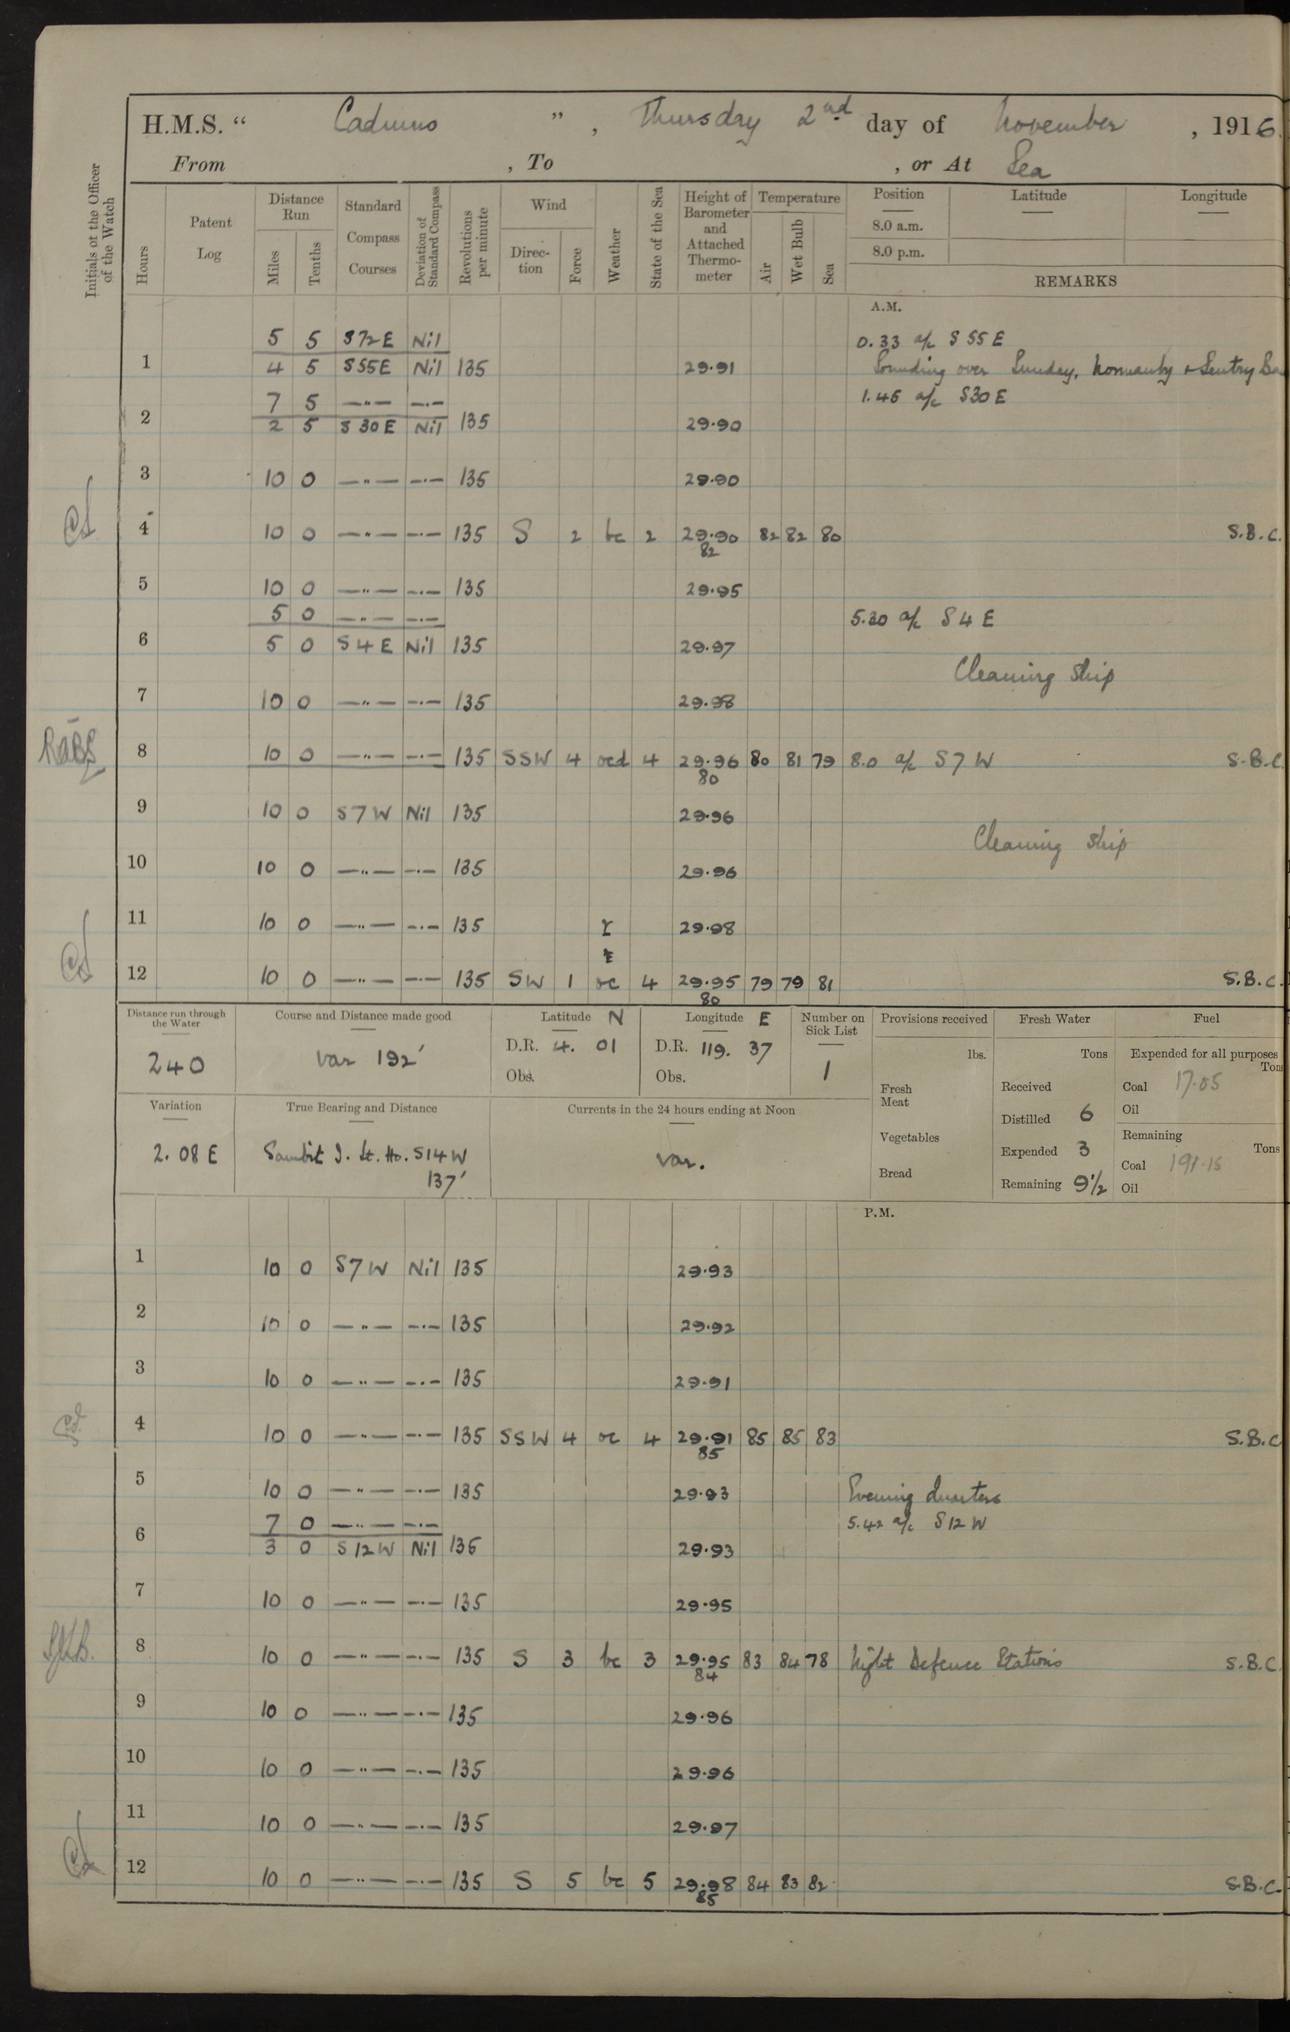 H.M.S. “ Cadmus ” , Thursday 2nd day of November , 1916.
From , To , or At Sea
Initials of the Officer of the Watch
Hours
Patent Log
Distance Run
Miles
Tenths
Standard Compass Courses
Deviation of Standard Compass
Revolutions per minute
Wind
Direction
Force
Weather
State of the Sea
Height of Barometer and Attached Thermometer
Temperature
Air
Wet Bulb
Sea
Position
8.0 a.m.
8.0 p.m.
Latitude
Longitude
REMARKS
A.M.
5 5 S72E Nil 0.33 a/c S 55 E
1 4 5 S55E Nil 135 29.91 Sounding over Sunday, Normanby & Sentry
7 5 —"— —"— 1.45 a/c S30E
2 2 5 S30E Nil 135 29.90
3 10 0 —"— —"— 135 29.90
4 10 0 —"— —"— 135 S 2 bc 2 29.90 82 82 80 S.B.C.
82
5 10 0 —"— —"— 135 29.95
5 0 —"— —"— 5.30 a/c S 4 E
6 5 0 S4E Nil 135 29.97
Cleaning Ship
7 10 0 —"— —"— 135 29.98
8 10 0 —"— —"— 135 SSW 4 ocd 4 29.96 80 81 79 8.0 a/c S7W S.B.C
80
9 10 0 S7W Nil 135 29.96
Cleaning Ship
10 10 0 —"— —"— 135 29.96
11 10 0 —"— —"— 135 29.98
12 10 0 —"— —"— 135 SW 1 oc 4 29.95 79 79 81 S.B.C.
80
Distance run through the Water
240
Course and Distance made good
var 192′
Latitude N
D.R. 4. 01
Obs.
Longitude E
D.R. 119. 37
Obs.
Number on Sick List
1
Provisions received
lbs.
Fresh Meat
Vegetables
Bread
Fresh Water
Tons
Received
Distilled 6
Expended 3
Remaining 9½
Fuel
Expended for all purposes
Tons
Coal 17.05
Oil
Remaining
Tons
Coal 191.15
Oil
Variation
2. 08 E
True Bearing and Distance
Sambit I. Lt. Ho. S14W
137′
Currents in the 24 hours ending at Noon
var.
P.M.
1 10 0 S7W Nil 135 29.93
2 10 0 —"— —"— 135 29.92
3 10 0 —"— —"— 135 29.91
4 10 0 —"— —"— 135 SSW 4 oc 4 29.91 85 85 83 S.B.C
85
5 10 0 —"— —"— 135 29.93 Evening Quarters
7 0 —"— —"— 5.42 a/c S12W
6 3 0 S12W Nil 135 29.93
7 10 0 —"— —"— 135 29.95
8 10 0 —"— —"— 135 S 3 bc 3 29.95 83 84 78 Night Defence Stations S.B.C.
84
9 10 0 —"— —"— 135 29.96
10 10 0 —"— —"— 135 29.96
11 10 0 —"— —"— 135 29.97
12 10 0 —"— —"— 135 S 5 bc 5 29.98 84 83 82 S.B.C.
85